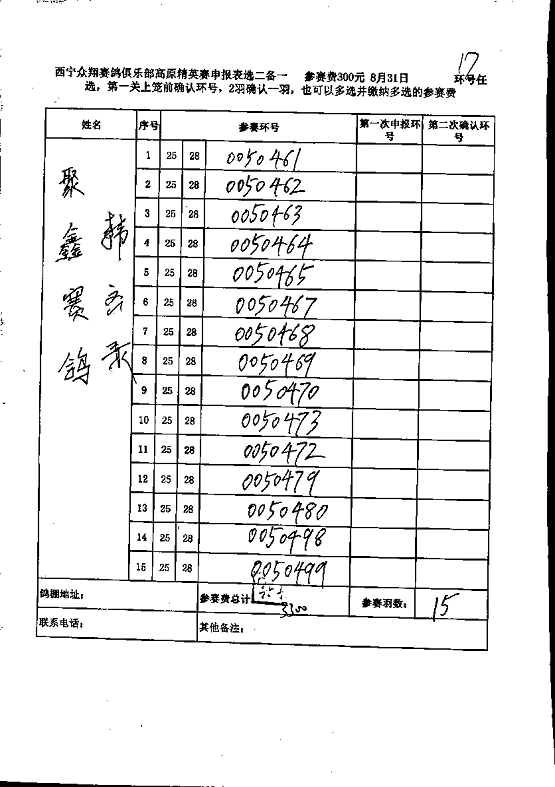 17
西宁众翔赛鸽俱乐部高原精英赛申报表选二备一 参赛费300元 8月31日 环号任
选，第一关上笼前确认环号，2羽确认一羽，也可以多选并缴纳多选的参赛费
姓名 序号 参赛环号 第一次申报环号 第二次确认环号
聚鑫赛鸽 韩
1 25 28 0050461
2 25 28 0050462
3 25 28 0050463
4 25 28 0050464
5 25 28 0050465
6 25 28 0050467
7 25 28 0050468
8 25 28 0050469
9 25 28 0050470
10 25 28 0050473
11 25 28 0050472
12 25 28 0050479
13 25 28 0050480
14 25 28 0050498
15 25 28 0050499
鸽棚地址： 参赛费总计 参赛羽数： 15
联系电话： 其他备注：